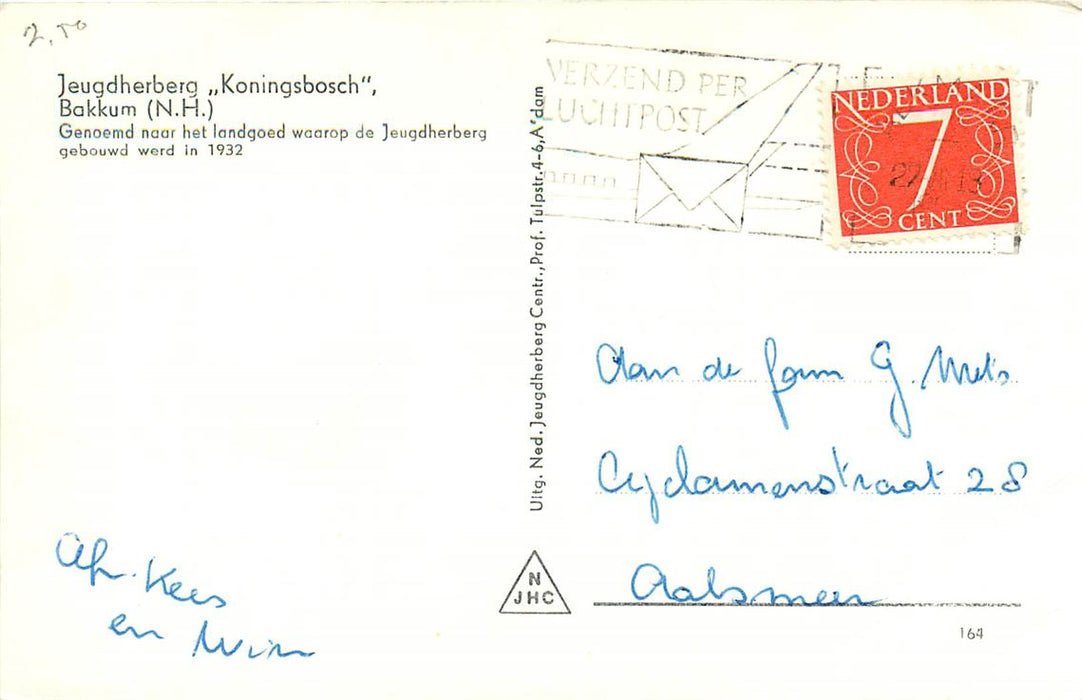 2,50
Jeugdherberg „Koningsbosch",
Bakkum (N.H.)
Genoemd naar het landgoed waarop de Jeugdherberg
gebouwd werd in 1932
VERZEND PER
LUCHTPOST
NEDERLAND
7
CENT
Uitg. Ned. Jeugdherberg Centr., Prof. Tulpstr. 4-6, A'dam
Aan de fam G. Mets
Cyclamenstraat 28
Aalsmeer
Afz. Kees
en Wim
N
JHC
164